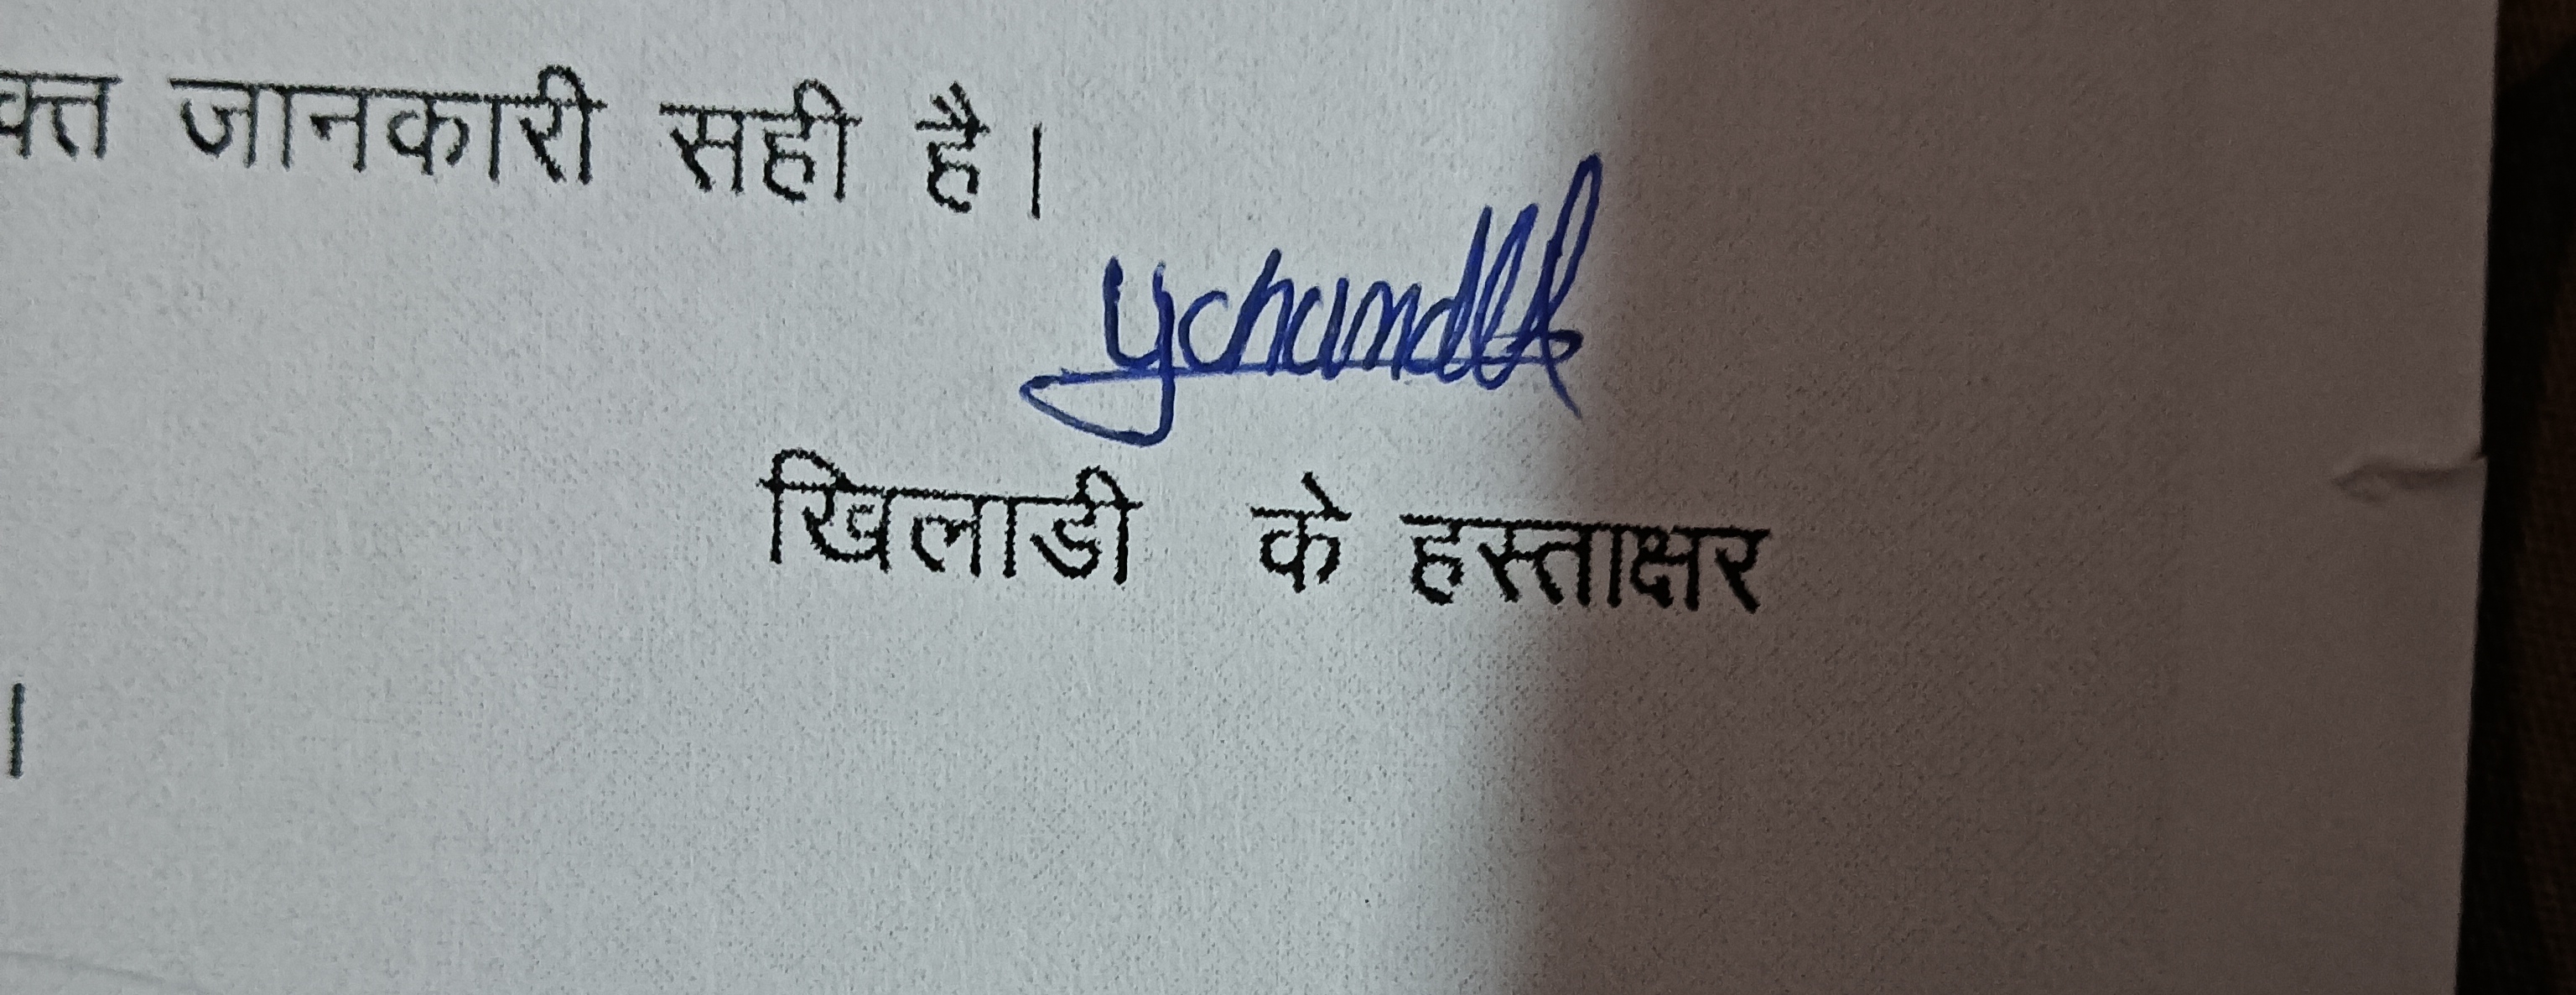 क्त जानकारी सही है।
खिलाडी के हस्ताक्षर
।